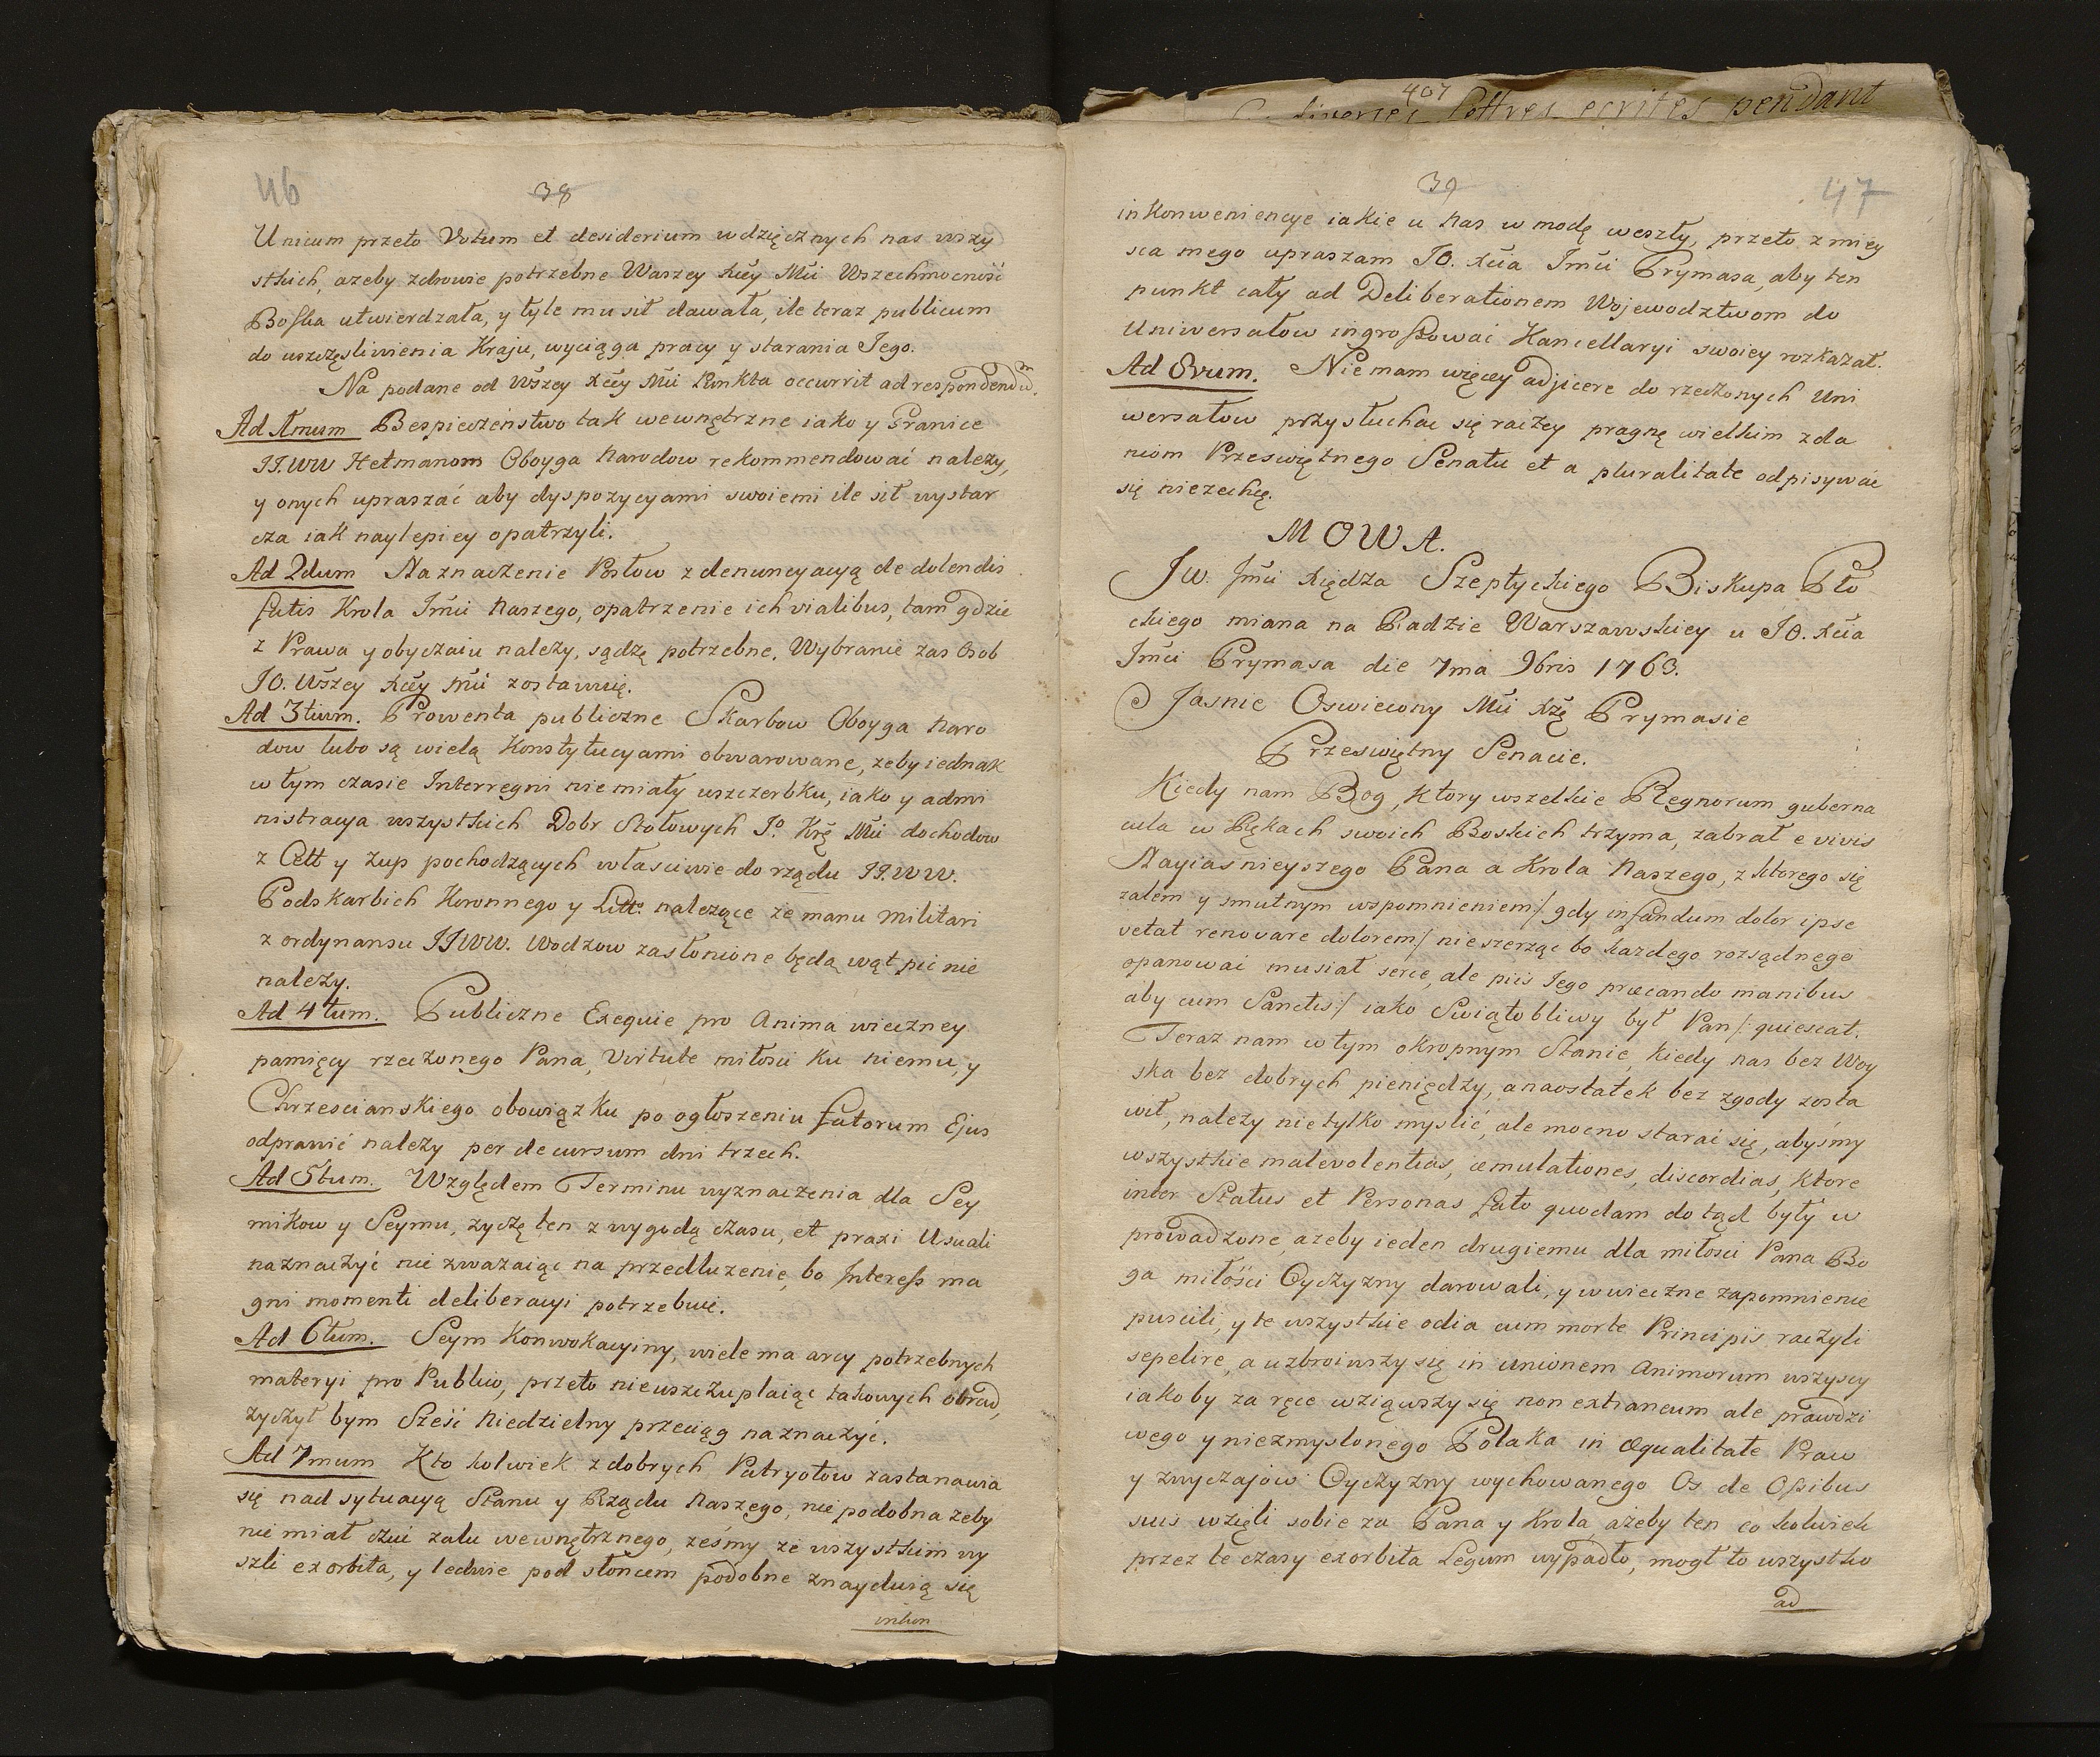 46
38
Unicum przeto Votum et desiderium wdzięcznych nas wszy
stkich, azeby zdrowie potrzebne Waszey Xcey Mci Wszechmocność
Boska utwierdzała, y tyle mu sił dawała, ile teraz publicum
do uszczęsliwienia Kraju, wyciąga pracy y starania Jego.
Na podane od Wszey Xcey Mci Punkta occurrit ad respondendum.
Ad 1mum Bespieczeństwo tak wewnętrzne iako y Granice
JJ.WW Hetmanom Oboyga Narodow rekommendować nalezy,
y onych upraszać aby dyspozycyami swoiemi ile sił wystar
cza iak naylepiey opatrzyli.
Ad 2dum Naznaczenie Posłow z denuncyacyą de dolendis
fatis Krola Jmci Naszego, opatrzenie ich vialibus, tam gdzie
z Prawa y obyczaiu nalezy, sądzę potrzebne. Wybranie zas Osob
JO. Wszey Xcey Mci zostawuię.
Ad 3tium. Prowenta publiczne Skarbow Oboyga Naro
dow lubo są wielą Konstytucyami obwarowane, zeby iednak
w tym czasie Interregni nie miały uszczerbku, iako y admi
nistracya wszystkich Dobr Stołowych Jo Krę Mci dochodow
z Cett y Zup pochodzących właściwie do rządu JJ.WW.
Podskarbich Koronnego y Litto nalezące ze manu militari
z ordynansu JJWW. Wodzow zasłonione będą wątpić nie
nalezy.
Ad 4tum. Publiczne Exequie pro Anima wieczney
pamięcy rzeczonego Pana, Virtute miłosci ku niemu, y
Chrzescianskiego obowiązku po ogłoszeniu fatorum Ejus
odprawić nalezy per decursum dni trzech.
Ad 5tum. Względem Terminu wyznaczenia dla Sey
mikow y Seymu, zyczę ten z wygodą czasu, et praxi Usuali
naznaczyć nie zwazaiąc na przedłuzenie, bo Interess ma
gni momenti deliberacyi potrzebuie.
Ad 6tum. Seym Konwokacyiny, wiele ma arcy potrzebnych
materyi pro Publico, przeto nieuszczuplaiąc takowych obrad,
zyczył bym Sześć Niedzielny przeciąg naznaczyć.
Ad 7mum Kto kolwiek z dobrych Patryotow zastanawia
się nad sytuacyą Stanu y Rządu Naszego, nie podobna zeby
nie miał czuć zalu wewnętrznego, ześmy ze wszystkim wy
szli ex orbita, y ledwie pod słoncem podobne znayduią się
inkon
407
diverses lettres ecrites pendant
39
47
inkonweniencye iakie u nas w modę weszły, przeto z miey
sca mego upraszam JO. Xcia Jmci Prymasa, aby ten
punkt cały ad Deliberationem Wojewodztwom do
Uniwersałow ingrossować Kancellaryi swoiey rozkazał.
Ad 8vum. Nie mam więcey adjicere do rzeczonych Uni
wersałow przysłuchac się raczey pragnę wielkim zda
niom Przeswiętnego Senatu et a pluralitate odpisywać
się niezechcę.
MOWA.
JW. Jmci Xiędza Szeptyckiego Biskupa Pło
ckiego miana na Radzie Warszawskiey u JO. Xcia
Jmci Prymasa die 7ma 9bris 1763.
Jasnie Oswiecony Mci Xżę Prymasie
Przeswiętny Senacie.
Kiedy nam Bog, ktory wszelkie Regnorum guberna
cula w Rękach swoich Boskich trzyma, zabrał e vivis
Nayiasnieyszego Pana a Krola Naszego, z ktorego się
zalem y smutnym wspomnieniem /: gdy infandum dolor ipse
vetat renovare dolorem / nieszerząc bo kazdego rozsądnego
opanować musiał serce, ale piis Jego precando manibus
aby cum Sanctis /: iako Swiątobliwy był Pan /: quiescat.
Teraz nam w tym okropnym Stanie, kiedy nas bez Woy
ska bez dobrych pieniędzy, a naostatek bez zgody zosta
wił, nalezy nie tylko myslić, ale mocno starać się, abyśmy
wszystkie malevolentias, æmulationes, discordias, ktore
inter Status et Personas fato quodam dotąd były w
prowadzone, azeby ieden drugiemu dla miłosci Pana Bo
ga miłości Oyczyzny darowali, y w wieczne zapomnienie
puscili, y te wszystkie odia cum morte Principis raczyli
sepelire, a uzbroiwszy się in unionem Animorum wszyscy
iakoby za ręce wziąwszy się non extraneum ale prawdzi
wego y niezmyslonego Polaka in æqualitate Praw
y zwyczajow Oyczyzny wychowanego Os de Ossibus
suis wzięli sobie za Pana y Krola, ażeby ten co kolwiek
przez te czasy ex orbita Legum wypadło, mogł to wszystko
ad